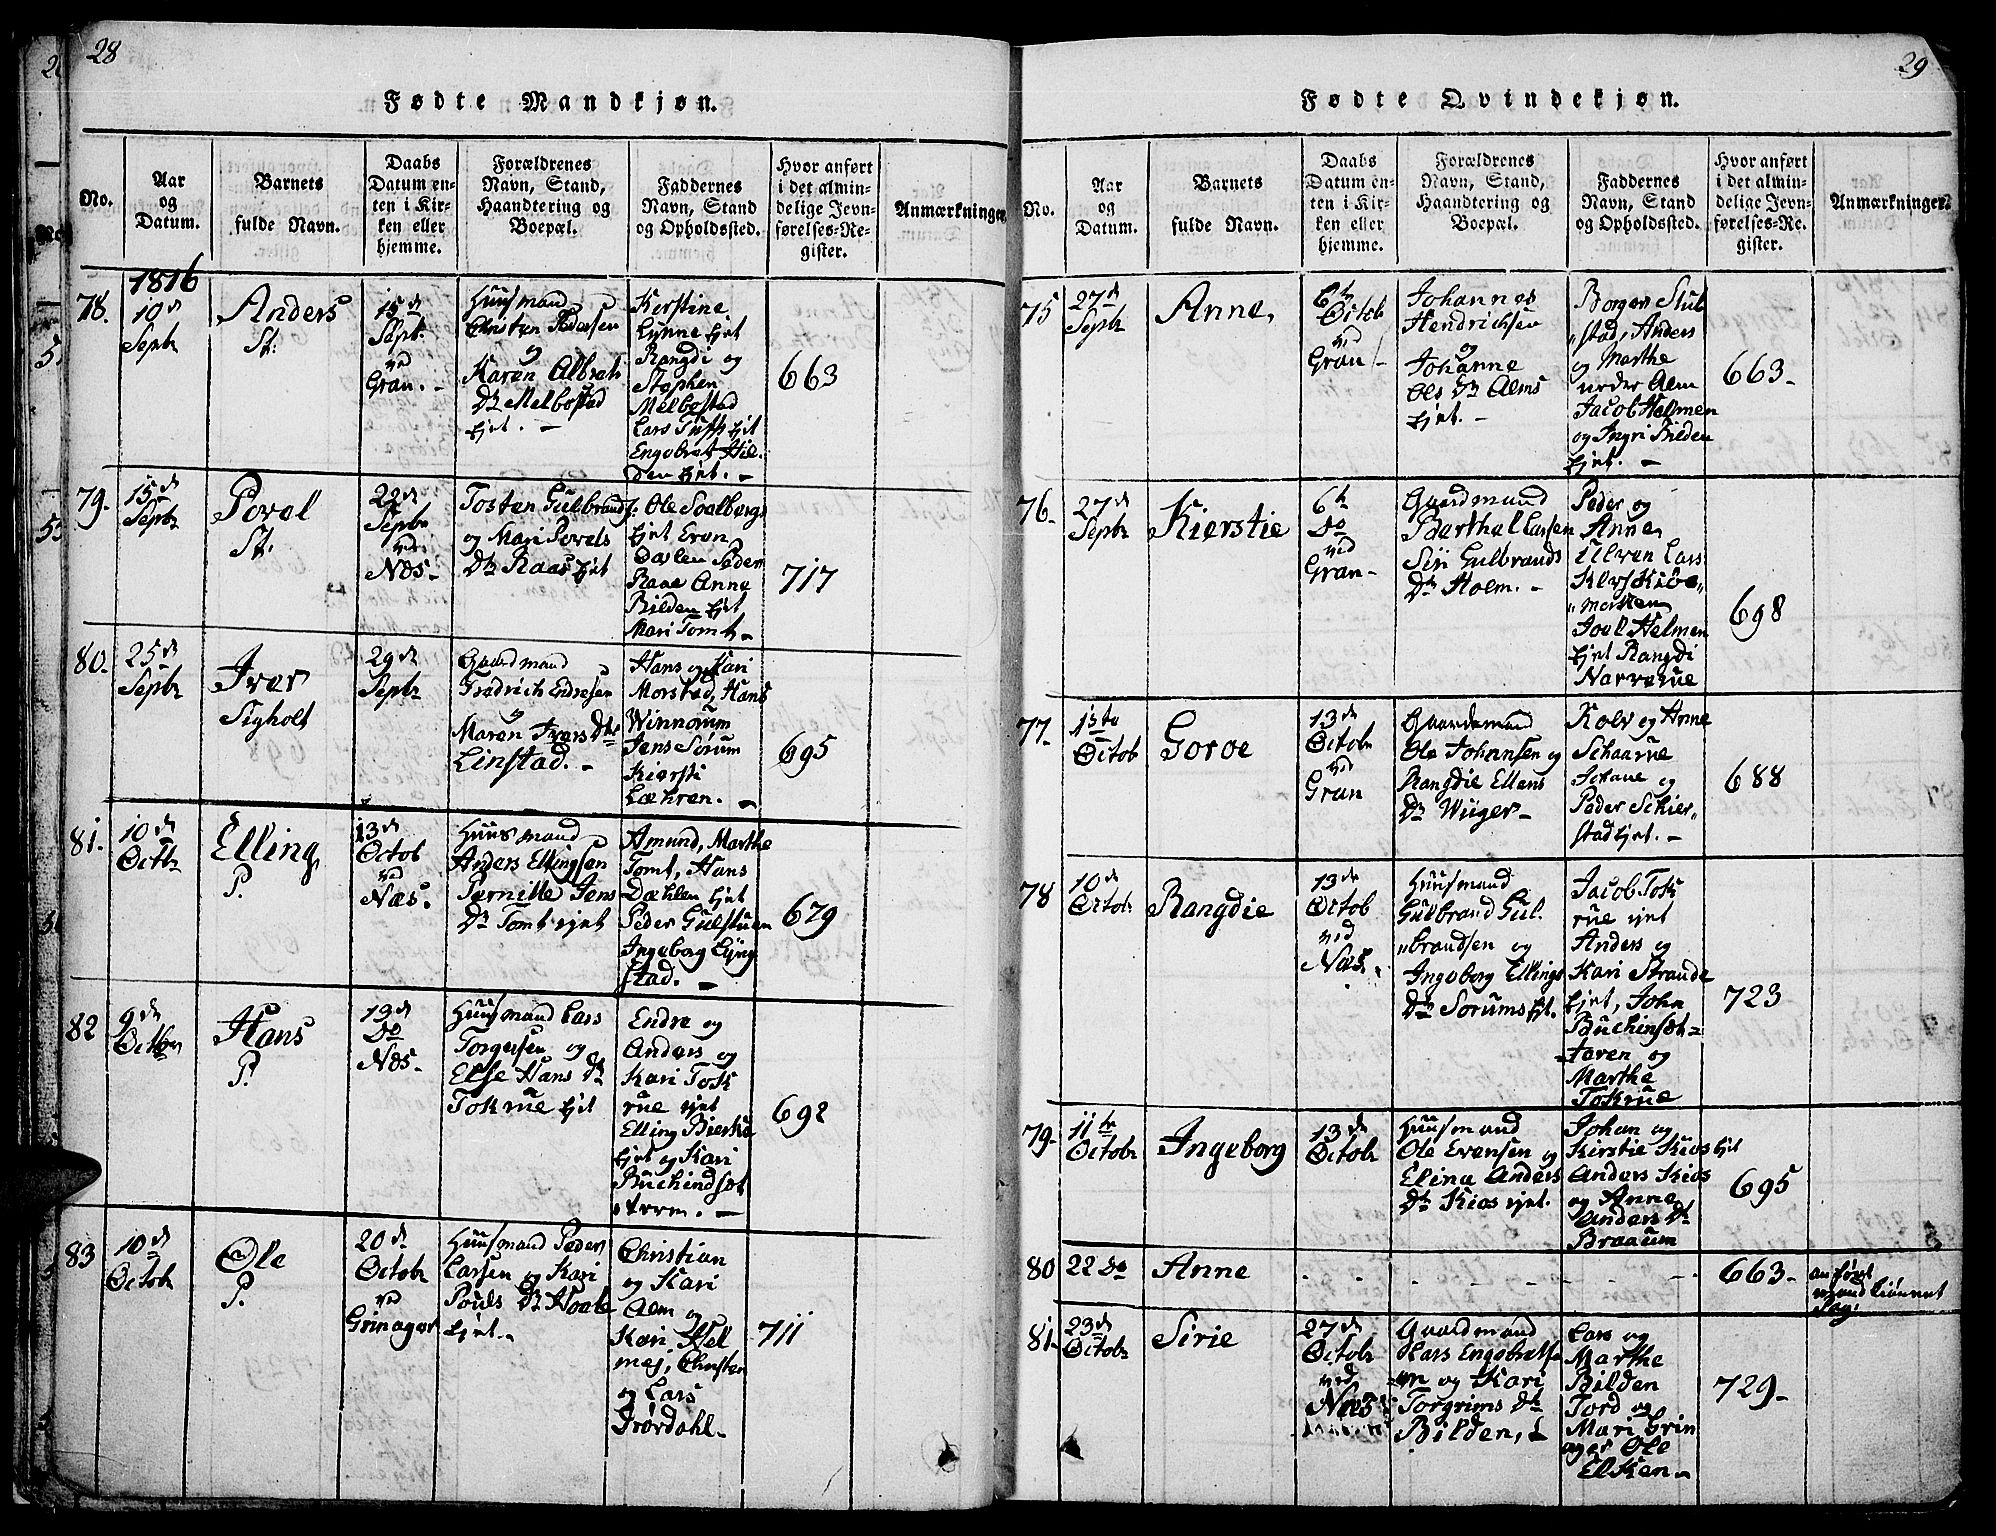 28
Fødte Mandkjøn.
No.
Aar
og
Datum.
Barnets
fulde Navn.
Daabs
Datum en-
ten i Kir-
ken eller
hjemme.
Forældrenes
Navn, Stand,
Haandtering og
Boepæl.
Faddernes
Navn, Stand
og Opholdssted.
Hvor anført
i det almin-
delige Jevn-
førelses-Re-
gister.
Anmærkninger.
1816
78.
10d
Septr
Anders
St:
15d
Sept.
ved
Gran. -
Huusmand
Christen Pedersen
og
Karen Albret
Dtr Melbostad
Ejet. -
Kerstine
Lynne Ejet
Rangdi og
Stephen
Melbostad
Lars Tufft Ejet
Engebret Hil-
den Ejet. -
663
79.
15d
Septr
Povel
St:
22d
Septr
ved
Næs-
Tosten Gulbrands:
og Mari Povels
Dtr Raas Ejet
Ole Soelbergs
Ejet Even
Dæhlen Peder
Raae Anne
Bilden Ejet
Mari Tomt. -
717
80.
25d
Septr
Iver
Sigholt
29d
Septr
Gaardmand
Fredrich Endresen
og
Maren Ivers Dtr
Linstad. -
Hans og Kari
Morstad, Hans
Winnorum
Jens Sørum
Kiersti
Læhren. -
695
81.
10d
Octbr
Elling,
P.
13d
Octob
ved
Næs.
Huusmand
Anders Ellingsen
Pernille Jens
Dtr Tomt ejet
Amund, Marthe
Tomt, Hans
Dæhlen Ejet
Peder Gulstuen
Ingeborg Lyng
stad. -
679
82
9d
Octbr
Hans
P.
13d
Do
Næs-
Huusmand Lars
Torgersen og
Else Hans Dtr
Tokrue Ejet
Endre og
Anders og
Kari Tok
rue ejet
Elling Bierke
Ejet og Kari
Buchindsæt
. -
692
83
10d
Octobr
Ole
P.
20d
Octobr
ved
Grinager
Huusmand Peder
Larsen og Kari
Pouls Dtr
Ejet. -
Christian
og Kari
Alm og
Kari Hel
mej, Christen
og Lars
Frørdahl. -
711
29
Fødte Qvindekjøn.
No.
Aar
og
Datum.
Barnets
fulde Navn.
Daabs
Datum en-
ten i Kir-
ken eller
hjemme.
Forældrenes
Navn, Stand,
Haandtering og
Boepæl.
Faddernes
Navn, Stand
og Opholdssted.
Hvor anført
i det almin-
delige Jevn-
førelses-Re-
gister.
Anmærkninger.
75
27d
Septr
Anne,
6te
Octob
ved
Gran -
Johannes
Hendrichsen
og
Johanne
Ols Dtr Alms
Ejet. -
Borger Stub
"stad, Anders
og Marthe
nedre Alm
Jacob Helmen
og Ingri Bilden
Ejet. -
663-
76-
27d
Septr
Kierstie
6te
Do
ved
Gran-
Gaardmand
Barthel Larsen
Siri Gulbrands
Dtr Holm. -
Peder og
Anne
Ulven Lars
Kiøe„
„marken
Joel Helmen
Ejet Rangdi
Narverue
698
77-
1ste
Octob
Goroe
13d
Octobr
ved
Gran
Gaardmand
Ole Johannsen og
Rangdie Ellens
Dtr Wiiger-
Kolv og Anne
Schaarue
Johane og
Peder Schier-
stad Ejet. -
688
78
10d
Octobr
Rangdie
13de
Octob
ved
Næs.
Huusmand
Gulbrand Gul.
„brandsen og
Ingeborg Ellings
Dtr Sorums Ejet.
Jacob Tok
rue ejet
Anders og
Kari Strande
Ejet, John
Buchinsæt=
=taren og
Marthe
Tokrue
723
79-
11te
Octobr
Ingeborg
13de
Octobr
Huusmand
Ole Evensen og
Eline Anders
Dtr Kios ejet.
Johan og
Kirstie Kios Ejet
Anders Kios
og Anne
Anders Dtr
Braaum
695
80
22 Do
Anne
- - - - - - - -
663-
anført
81-
23d
Octobr
Sirie
27de
Octobr
ved
Næs
Gaardmand
Lars Engebretse
=en og Kari
Torgrims Dtr
Bilden, -
Lars og
Marthe
Bilden
Tord og
Mari Grin
ager Ole
Elken -
729-